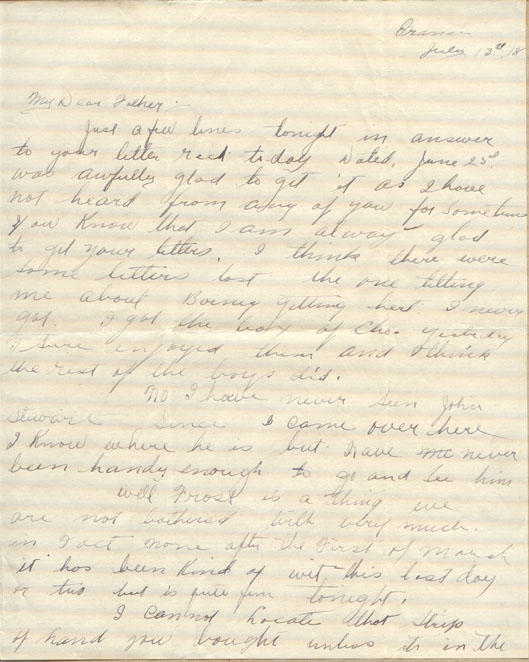 France
July 13th, 18
My Dear Father:-
Just a few lines tonight in answer
to your letter recd today Dated, June 23d
was awfully glad to get it as I have
not heard from any of you for sometime
you Know that I am always glad
to get your letters. I think there were
some letters lost the one telling
me about getting hert. I never
got. I got the box of Cho. yesterday
I sure enjoyed them and I think
the rest of the boys did.
No I have never seen John
Steward Since I came over here
I Know where he is but have never
been handy enough to go and see him
well Frost is a thing we
are not bothered with very much.
in Fact none after the First of March
it has been Kind of wet this last day
or two but is fine tonight.
I cannot Locate that Strip
of land you bought unless its in the